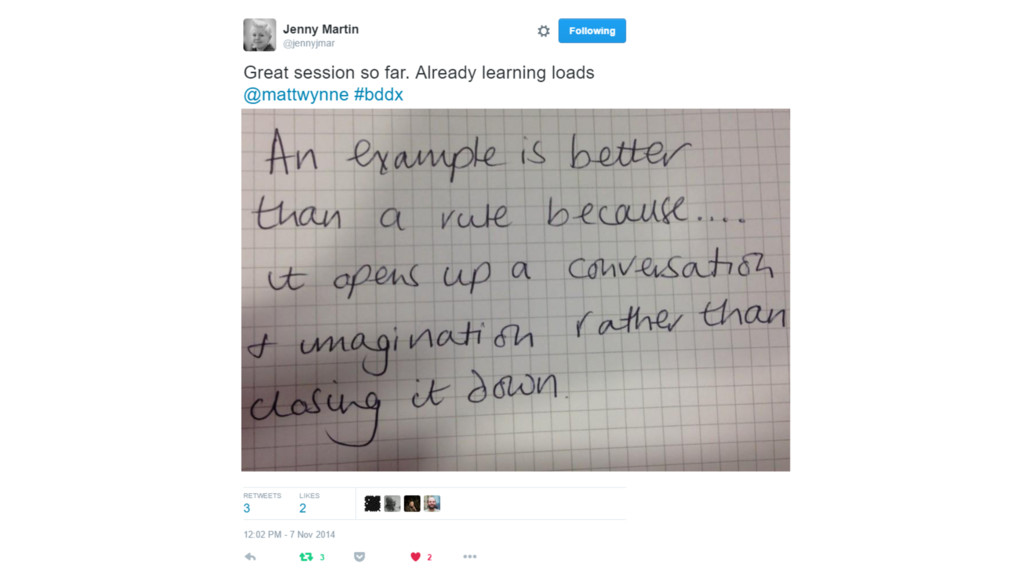 Jenny Martin
@jennyjmar
Following
Great session so far. Already learning loads
@mattwynne #bddx
An example is better
than a rule because....
it opens up a conversation
& imagination rather than
closing it down.
RETWEETS LIKES
3 2
12:02 PM - 7 Nov 2014
3 2